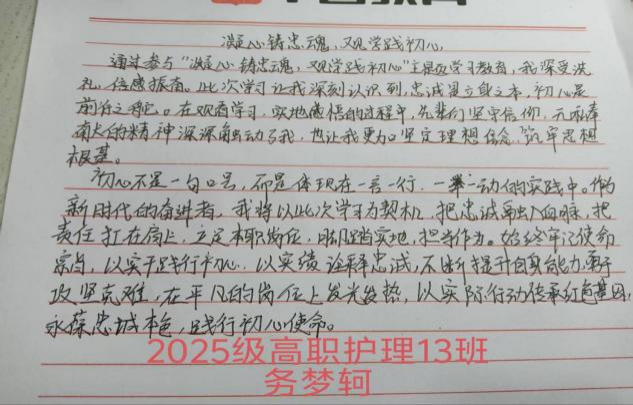 凝心铸忠魂，观学践初心
通过参与“凝心铸忠魂，观学践初心”主题教育学习教育，我深受洗
礼、倍感振奋。此次学习让我深刻认识到，忠诚是立身之本，初心是
前行之舵。在观看学习、实地感悟的过程中，先辈们坚守信仰、无私奉
献的精神深深触动了我，也让我更加坚定理想信念、筑牢思想
根基。
初心不是一句口号，而是体现在一言一行、一举一动的实践中。作为
新时代的奋进者，我将以此次学习为契机，把忠诚融入血脉，把
责任扛在肩上，立足本职岗位，脚踏实地，担当作为。始终牢记使命
宗旨，以实干践行初心，以实绩诠释忠诚，不断提升自身能力，勇于
攻坚克难，在平凡的岗位上发光发热，以实际行动传承红色基因，
永葆忠诚本色，践行初心使命。
2025级高职护理13班
务梦轲